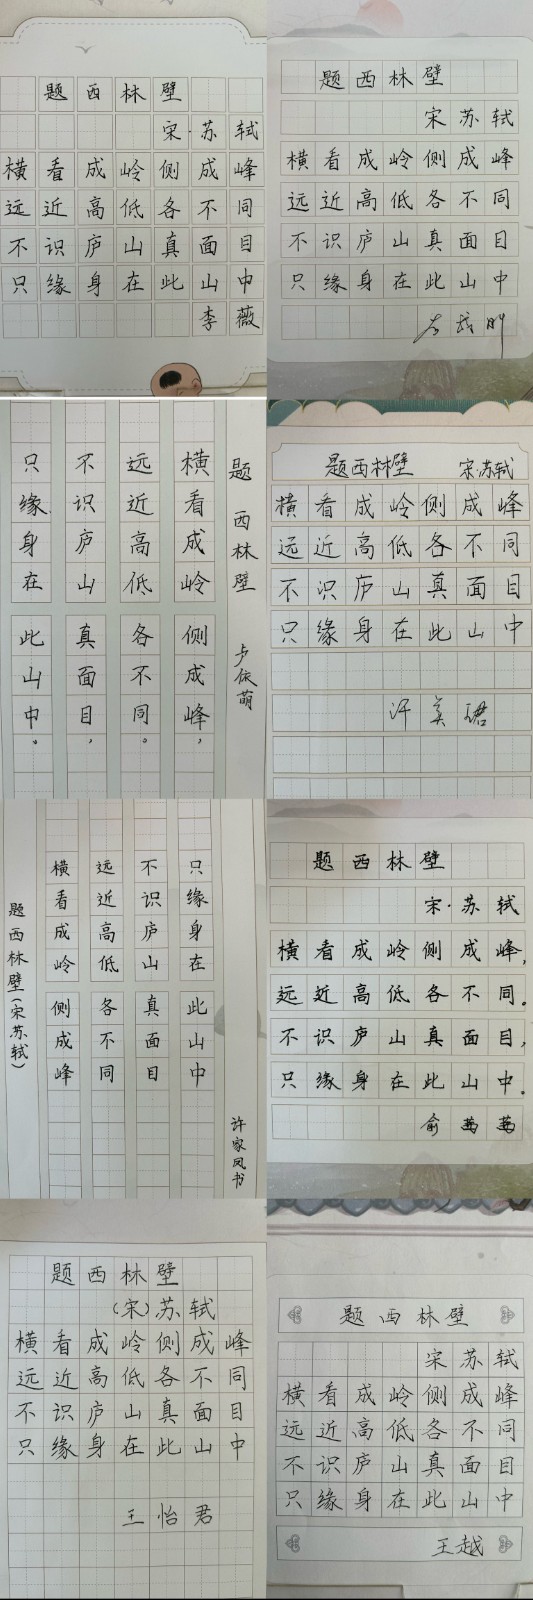 题西林壁
宋·苏轼
横看成岭侧成峰
远近高低各不同
不识庐山真面目
只缘身在此山中
李薇
题西林壁
宋苏轼
横看成岭侧成峰
远近高低各不同
不识庐山真面目
只缘身在此山中
题西林壁
卢依萌
横看成岭侧成峰，
远近高低各不同。
不识庐山真面目，
只缘身在此山中。
题西林壁 宋·苏轼
横看成岭侧成峰
远近高低各不同
不识庐山真面目
只缘身在此山中
题西林壁（宋苏轼）
横看成岭侧成峰
远近高低各不同
不识庐山真面目
只缘身在此山中
许家凤书
题西林壁
宋·苏轼
横看成岭侧成峰，
远近高低各不同。
不识庐山真面目，
只缘身在此山中。
俞茜茜
题西林壁
（宋）苏轼
横看成岭侧成峰
远近高低各不同
不识庐山真面目
只缘身在此山中
王怡君
题西林壁
宋苏轼
横看成岭侧成峰
远近高低各不同
不识庐山真面目
只缘身在此山中
王越